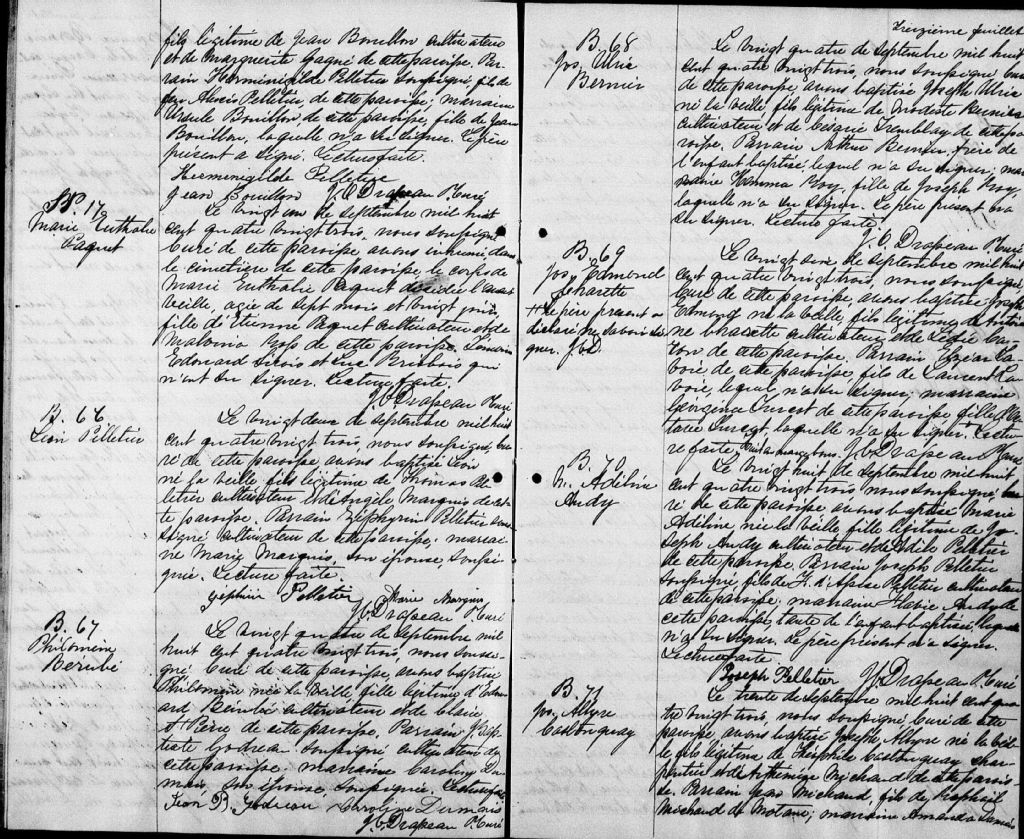 fils légitime de Jean Bouillon cultivateur
et de Marguerite Gagné de cette paroisse. Par-
rain Herminigilde Pelletier soussigné, fils de
feu Alexis Pelletier, de cette paroisse; marraine
Ursule Bouillon de cette paroisse, fille de Jean
Bouillon, laquelle n'a su signer. Le père
présent a signé. Lecture faite.
Herménigilde Pelletier
Jean Bouillon J. O. Drapeau Ptre curé
S. 17
Marie Euthalie
Paquet
Le vingt un de septembre mil huit
cent quatre vingt trois, nous soussigné
Curé de cette paroisse avons inhumé dans
le cimetière de cette paroisse, le corps de
Marie Euthalie Paquet décédée l'avant
veille, agée de sept mois et vingt jours,
fille d'Etienne Paquet cultivateur et de
Malvina Ross de cette paroisse. Témoins
Edouard Sirois et Luc Brisbois qui
n'ont su signer. Lecture faite.
J. O. Drapeau Ptre curé
B. 66
Léon Pelletier
Le vingt deux de septembre mil huit
cent quatre vingt trois, nous soussigné, cu-
ré de cette paroisse, avons baptisé Léon
né la veille, fils légitime de Thomas Pel-
letier cultivateur et de Angèle Marquis de cet-
te paroisse. Parrain Zéphyrin Pelletier sous-
signé cultivateur de cette paroisse; marrai-
ne Marie Marquis, son épouse soussi-
gnée. Lecture faite.
Zéphirin Pelletier Marie Marquis
J. O. Drapeau Ptre curé
B. 67
Philomène
Bérubé
Le vingt quatre de septembre mil
huit cent quatre vingt trois, nous soussi-
gné Curé de cette paroisse, avons baptisé
Philomène née la veille fille légitime d'Edou-
ard Bérubé cultivateur et de Claire
St Pierre de cette paroisse. Parrain J. Bap-
tiste Godreau soussigné cultivateur de
cette paroisse. marraine Caroline Du-
mais, son épouse, soussignée. Lecture faite
Jean B. Godreau Caroline Dumais
J. O. Drapeau Ptre curé
Treizième feuillet
B. 68
Jos. Ulric
Bernier
Le vingt quatre de septembre mil huit
cent quatre vingt trois, nous soussigné curé
de cette paroisse, avons baptisé Joseph Ulric
né la veille fils légitime de Modeste Bernier
cultivateur et de Césarie Tremblay de cette pa-
roisse. Parrain Arthur Bernier, frère de
l'enfant baptisé lequel n'a su signer; mar-
raine Emma Roy, fille de Joseph Roy,
laquelle n'a su signer. Le père présent n'a
su signer. Lecture faite.
J. O. Drapeau Ptre curé
B. 69
Jos. Edmond
Charette
+ le père présent a
déclaré ne savoir si-
gner. J. O. D.
Le vingt six de septembre mil huit
cent quatre vingt trois, nous soussigné,
Curé de cette paroisse, avons baptisé Joseph
Edmond né la veille fils légitime de
Charette cultivateur et de
de cette paroisse. Parrain La-
voie de cette paroisse, fils de Laurent La-
voie, lequel n'a su signer; marraine
Georgina de cette paroisse fille
laquelle n'a su signer. Lectu-
re faite. J. O. Drapeau Ptre curé
B. 70
M. Adéline
Audy
Le vingt huit de septembre mil huit
cent quatre vingt trois, nous soussigné, Cu-
ré de cette paroisse avons baptisé Marie
Adéline née la veille fille légitime de Jo-
seph Audy cultivateur et de Adèle Pelletier
de cette paroisse. Parrain Joseph Pelletier
soussigné fils de Pelletier cultivateur
de cette paroisse: marraine Audy de
cette paroisse, tante de l'enfant baptisée, laquelle
n'a su signer. Le père présent n'a signé.
Lecture faite
Joseph Pelletier J. O. Drapeau Ptre curé
B. 71
Jos. Albyre
Castonguay
Le trente de septembre mil huit cent qua-
tre vingt trois, nous soussigné Curé de cette
paroisse avons baptisé Joseph Albyre né la veil-
le fils légitime de Théophile Castonguay char-
pentier et de Arthémise Michaud de cette parois-
se. Parrain Jean Michaud, fils de Raphael
Michaud de Matane; marraine Amanda